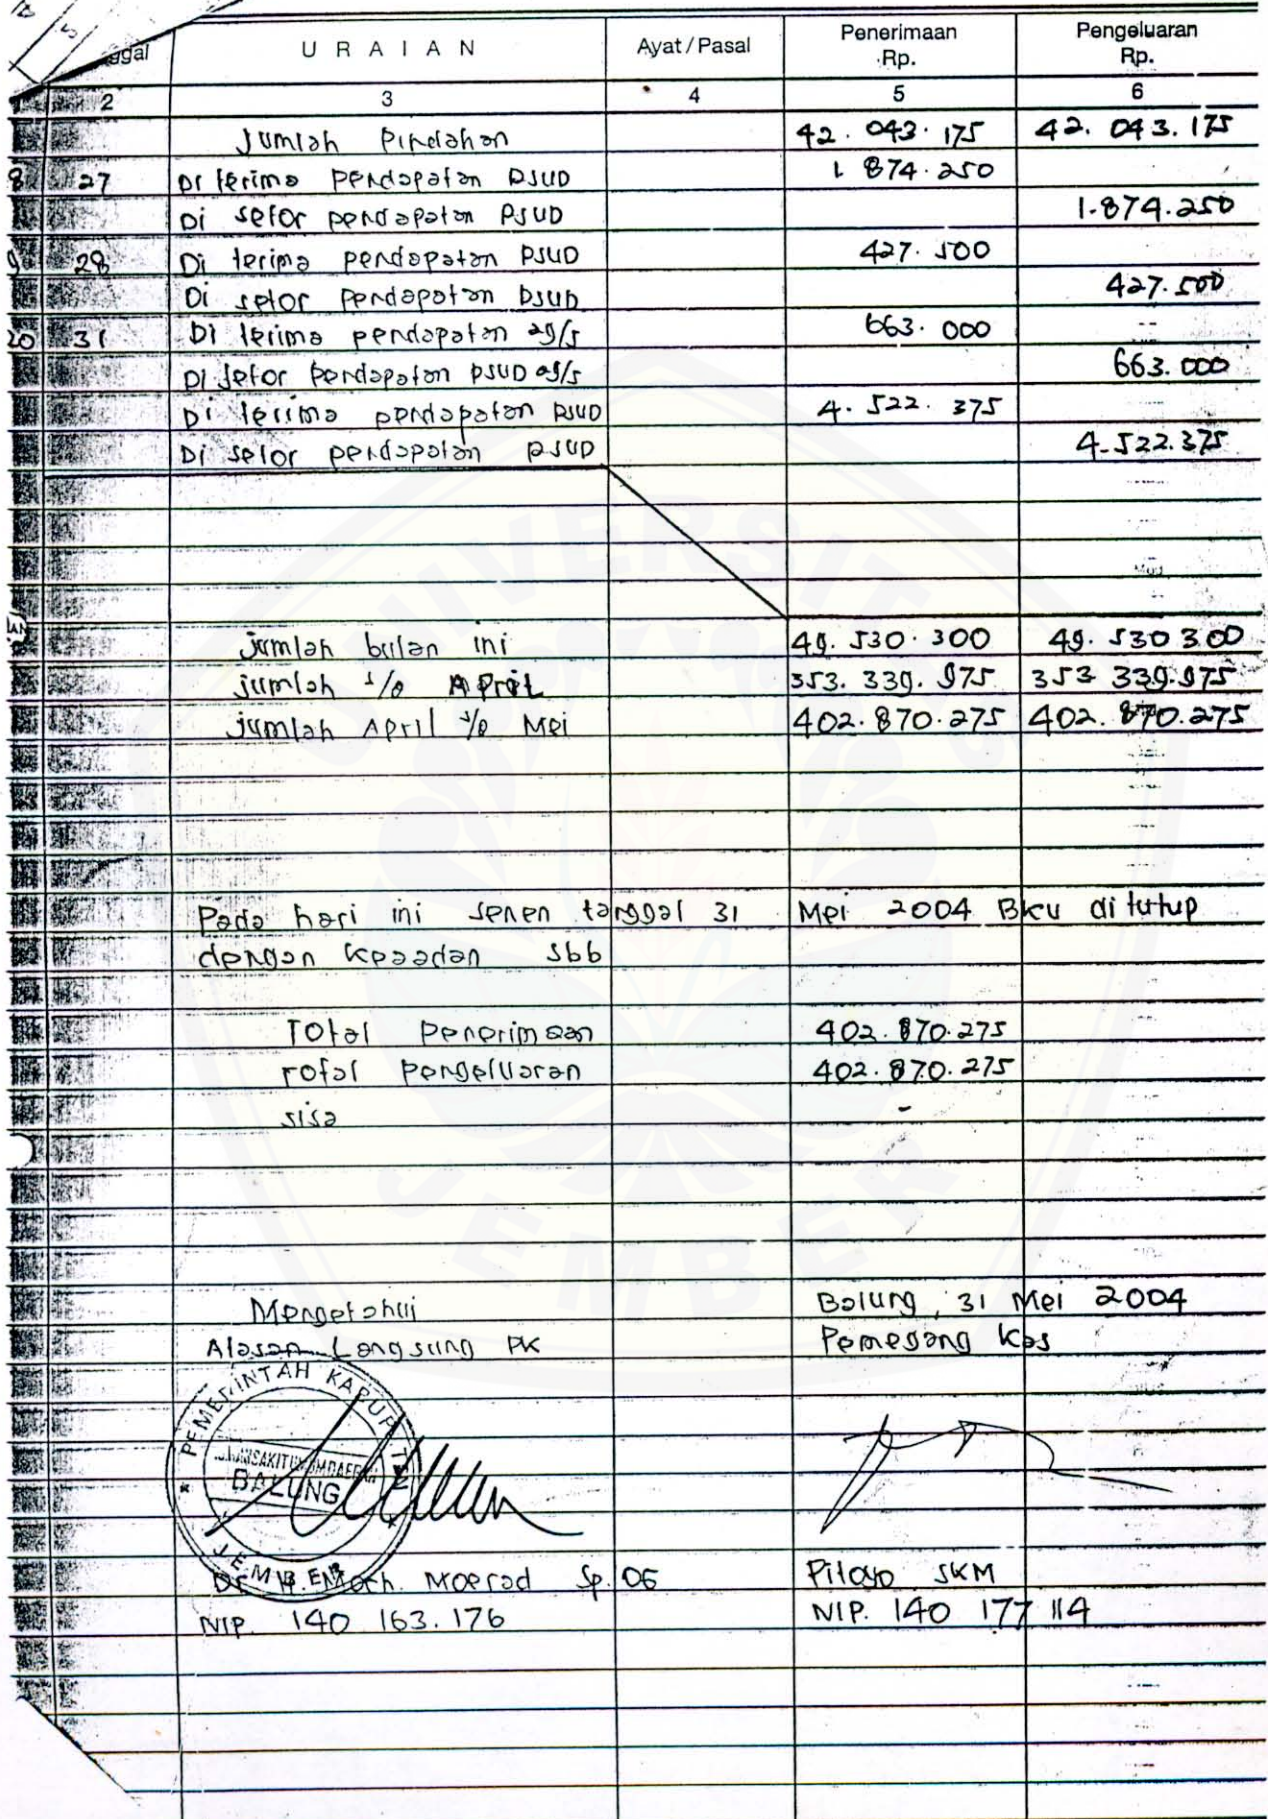 ggal URAIAN Ayat/Pasal Penerimaan Rp. Pengeluaran Rp.
2 3 4 5 6
Jumlah Pindahan 42.043.175 42.043.175
8 27 Di terima pendapatan RSUD 1.874.250
Di setor pendapatan RSUD 1.874.250
9 28 Di terima pendapatan RSUD 427.500
Di setor pendapatan RSUD 427.500
20 31 Di terima pendapatan 663.000
Di setor pendapatan RSUD 663.000
Di terima pendapatan RSUD 4.522.375
Di setor pendapatan RSUD 4.522.375
jumlah bulan ini 49.530.300 49.530.300
jumlah s/d April 353.339.975 353.339.975
jumlah April s/d Mei 402.870.275 402.870.275
Pada hari ini senen tanggal 31 Mei 2004 BKU di tutup
dengan keaadan sbb
Total Penerimaan 402.870.275
Total Pengeluaran 402.870.275
sisa -
Mengetahui Balung, 31 Mei 2004
Atasan Langsung PK Pemegang Kas
PEMERINTAH KABUPATEN
BALUNG
JEMBER
Dr. H. Moch. Moerad Sp. OG
SKM
NIP. 140 163.176 NIP. 140 177 114
UNIVERSITAS
JEMBER